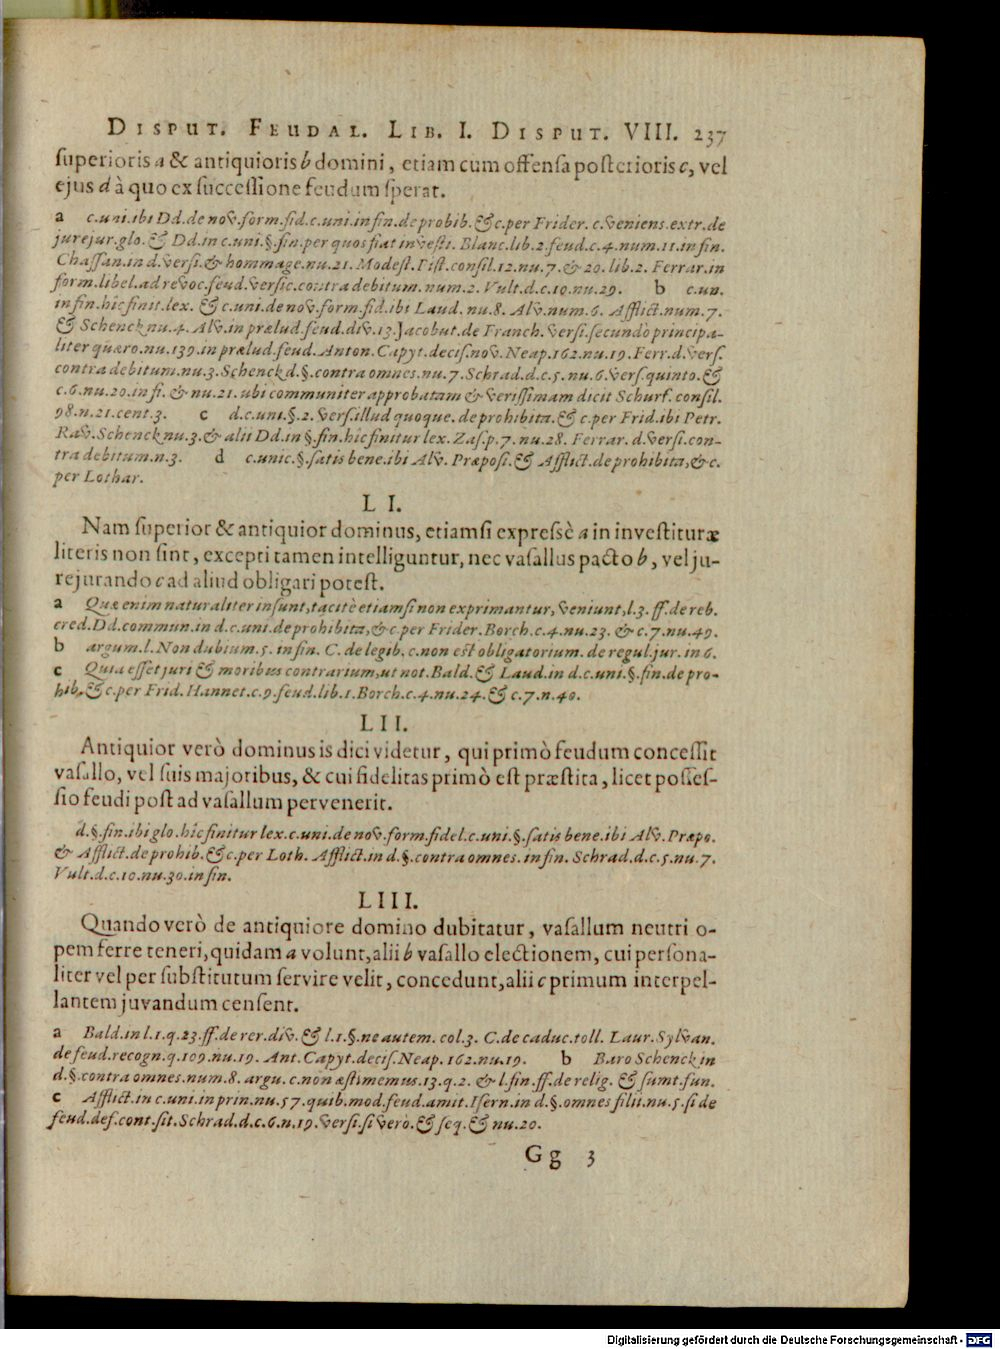 DISPUT. FEUDAL. LIB. I. DISPUT. VIII. 237
superioris a & antiquioris b domini, etiam cum offensa posterioris c, vel
ejus d à quo ex successione feudum sperat.
a c.uni.ibi Dd.de nov.form.fid.c.uni.in fin.de prohib.&c.per Frider. c.veniens.extr.de
jurejur.glo.& Dd.in c.uni.§.fin.per quos fiat investi. Blanc.lib.2.feud.c.4.num.11.in fin.
Chassan.in d.versi.& hommage.nu.21. Modest.Pist.consil.12.nu.7.& 20.lib.2. Ferrar.in
form.libel.ad revoc.feud.versic.contra debitum.num.2. Vult.d.c.10.nu.29. b c.un.
in fin.hic finit.lex. & c.uni.de nov.form.fid.ibi Laud. nu.8. Alv.num.6. Afflict.num.7.
& Schenck.nu.4. Alv.in prælud.feud.div.13.Jacobut.de Franch.versi.secundò principa-
liter quæro.nu.139.in prælud.feud.Anton.Capyt.decis.nov.Neap.162.nu.19.Ferr.d.vers.
contra debitum.nu.3.Schenck.d.§.contra omnes.nu.7.Schrad.d.c.5.nu.6.vers.quinto.&
c.6.nu.20.in fi. & nu.21.ubi communiter approbatam & verissimam dicit Schurf.consil.
98.n.21.cent.3. c d.c.uni.§.2.vers.illud quoque.de prohibita.& c.per Frid.ibi Petr.
Rav.Schenck.nu.3.& alii Dd.in §.fin.hic finitur lex. Zas.p.7.nu.28. Ferrar.d.versi.con-
tra debitum.n.3. d c.unic.§.satis bene.ibi Alv. Præposi.& Afflict.de prohibita,&c.
per Lothar.
LI.
Nam superior & antiquior dominus, etiamsi expressè a in investituræ
literis non sint, excepti tamen intelliguntur, nec vasallus pacto b, vel ju-
rejurando c ad aliud obligari potest.
a Quæ enim naturaliter insunt,tacitè etiamsi non exprimantur, veniunt,l.3.ff.de reb.
cred.Dd.commun.in d.c.uni.de prohibita,&c.per Frider.Borch.c.4.nu.23. & c.7.nu.49.
b argum.l.Non dubium.5. in fin. C. de legib. c.non est obligatorium. de regul.jur. in 6.
c Quia esset juri & moribus contrarium,ut not.Bald.& Laud.in d.c.uni.§.fin.de pro-
hib.&c.per Frid.Hannet.c.9.feud.lib.1.Borch.c.4.nu.24.& c.7.n.40.
LII.
Antiquior verò dominus is dici videtur, qui primò feudum concessit
vasallo, vel suis majoribus, & cui fidelitas primò est præstita, licet posses-
sio feudi post ad vasallum pervenerit.
d.§.fin.ibi glo.hîc finitur lex.c.uni.de nov.form.fidel.c.uni.§.satis bene.ibi Alv. Præpo.
& Afflict.de prohib.&c.per Loth. Afflict.in d.§.contra omnes. in fin. Schrad.d.c.5.nu.7.
Vult.d.c.10.nu.30.in fin.
LIII.
Quando verò de antiquiore domino dubitatur, vasallum neutri o-
pem ferre teneri, quidam a volunt, alii b vasallo electionem, cui persona-
liter vel per substitutum servire velit, concedunt, alii c primum interpel-
lantem juvandum censent.
a Bald.in l.1.q.23.ff.de rer.div.& l.1.§.ne autem. col.3. C.de caduc.toll. Laur.Sylvan.
de feud.recogn.q.109.nu.19. Ant.Capyt.decis.Neap.162.nu.19. b Baro Schenck.in
d.§.contra omnes.num.8. argu. c.non æstimemus.13.q.2. & l.fin.ff.de relig. & sumt.fun.
c Afflict.in c.uni.in prin.nu.57.quib.mod.feud.amit.Isern.in d.§.omnes filii.nu.5.si de
feud.def.cont.sit.Schrad.d.c.6.n.19.versi.si vero.& seq.& nu.20.
Gg 3
Digitalisierung gefördert durch die Deutsche Forschungsgemeinschaft - DFG